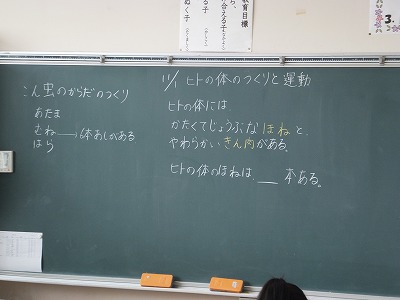 教育目標
合える子
ぬく子
3.
こん虫のからだのつくり
あたま
むね——6本あしがある
はら
11/1 ヒトの体のつくりと運動
ヒトの体には
かたくてじょうぶなほねと、
やわらかいきん肉がある。
ヒトの体のほねは、__本ある。